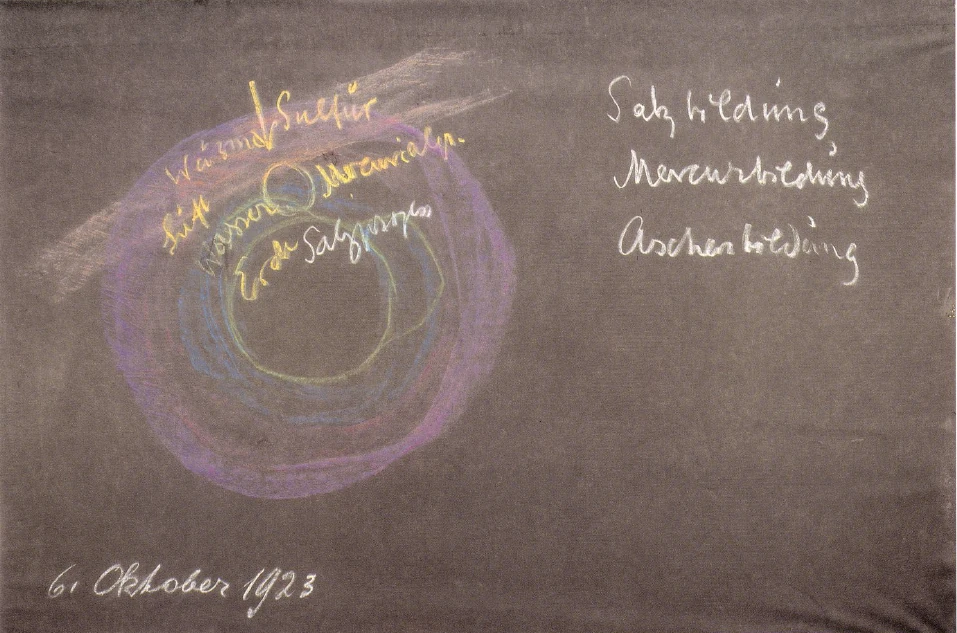 Sulfür
Wärme
Mercurialp.
Luft
Wasser
Erde Salzprozess
Salzbildüng
Mercurbildüng
Aschenbildüng
6. Oktober 1923